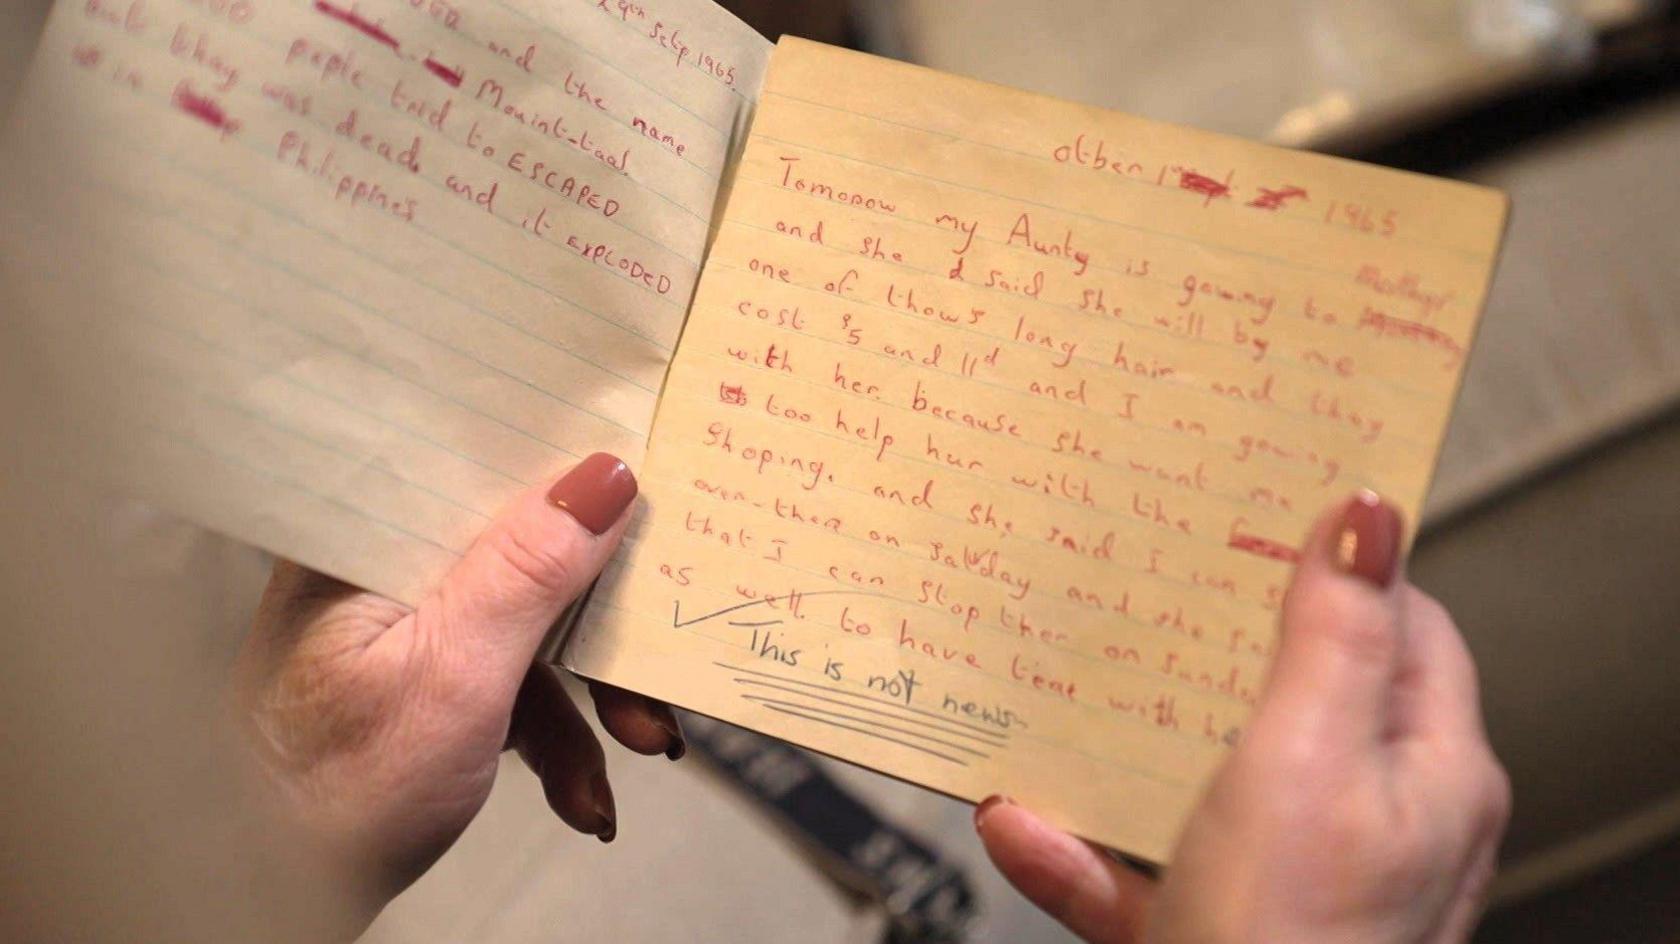 29th Setp 1965.
and the name
Mouint-taal.
peple taid to ESCAPED
but thay was dead and it EXPLODED
in Philippines
otber 1 1965
Tomorow my Aunty is gowing to
and she said she will by me
one of thows long hair and thay
cost $5 and 11d and I am gowing
with her. because she want me
too help hur with the
Shoping. and she said I can
over-ther on satday and she
that I can stop ther on sunday
as well. to have teae with he
This is not news